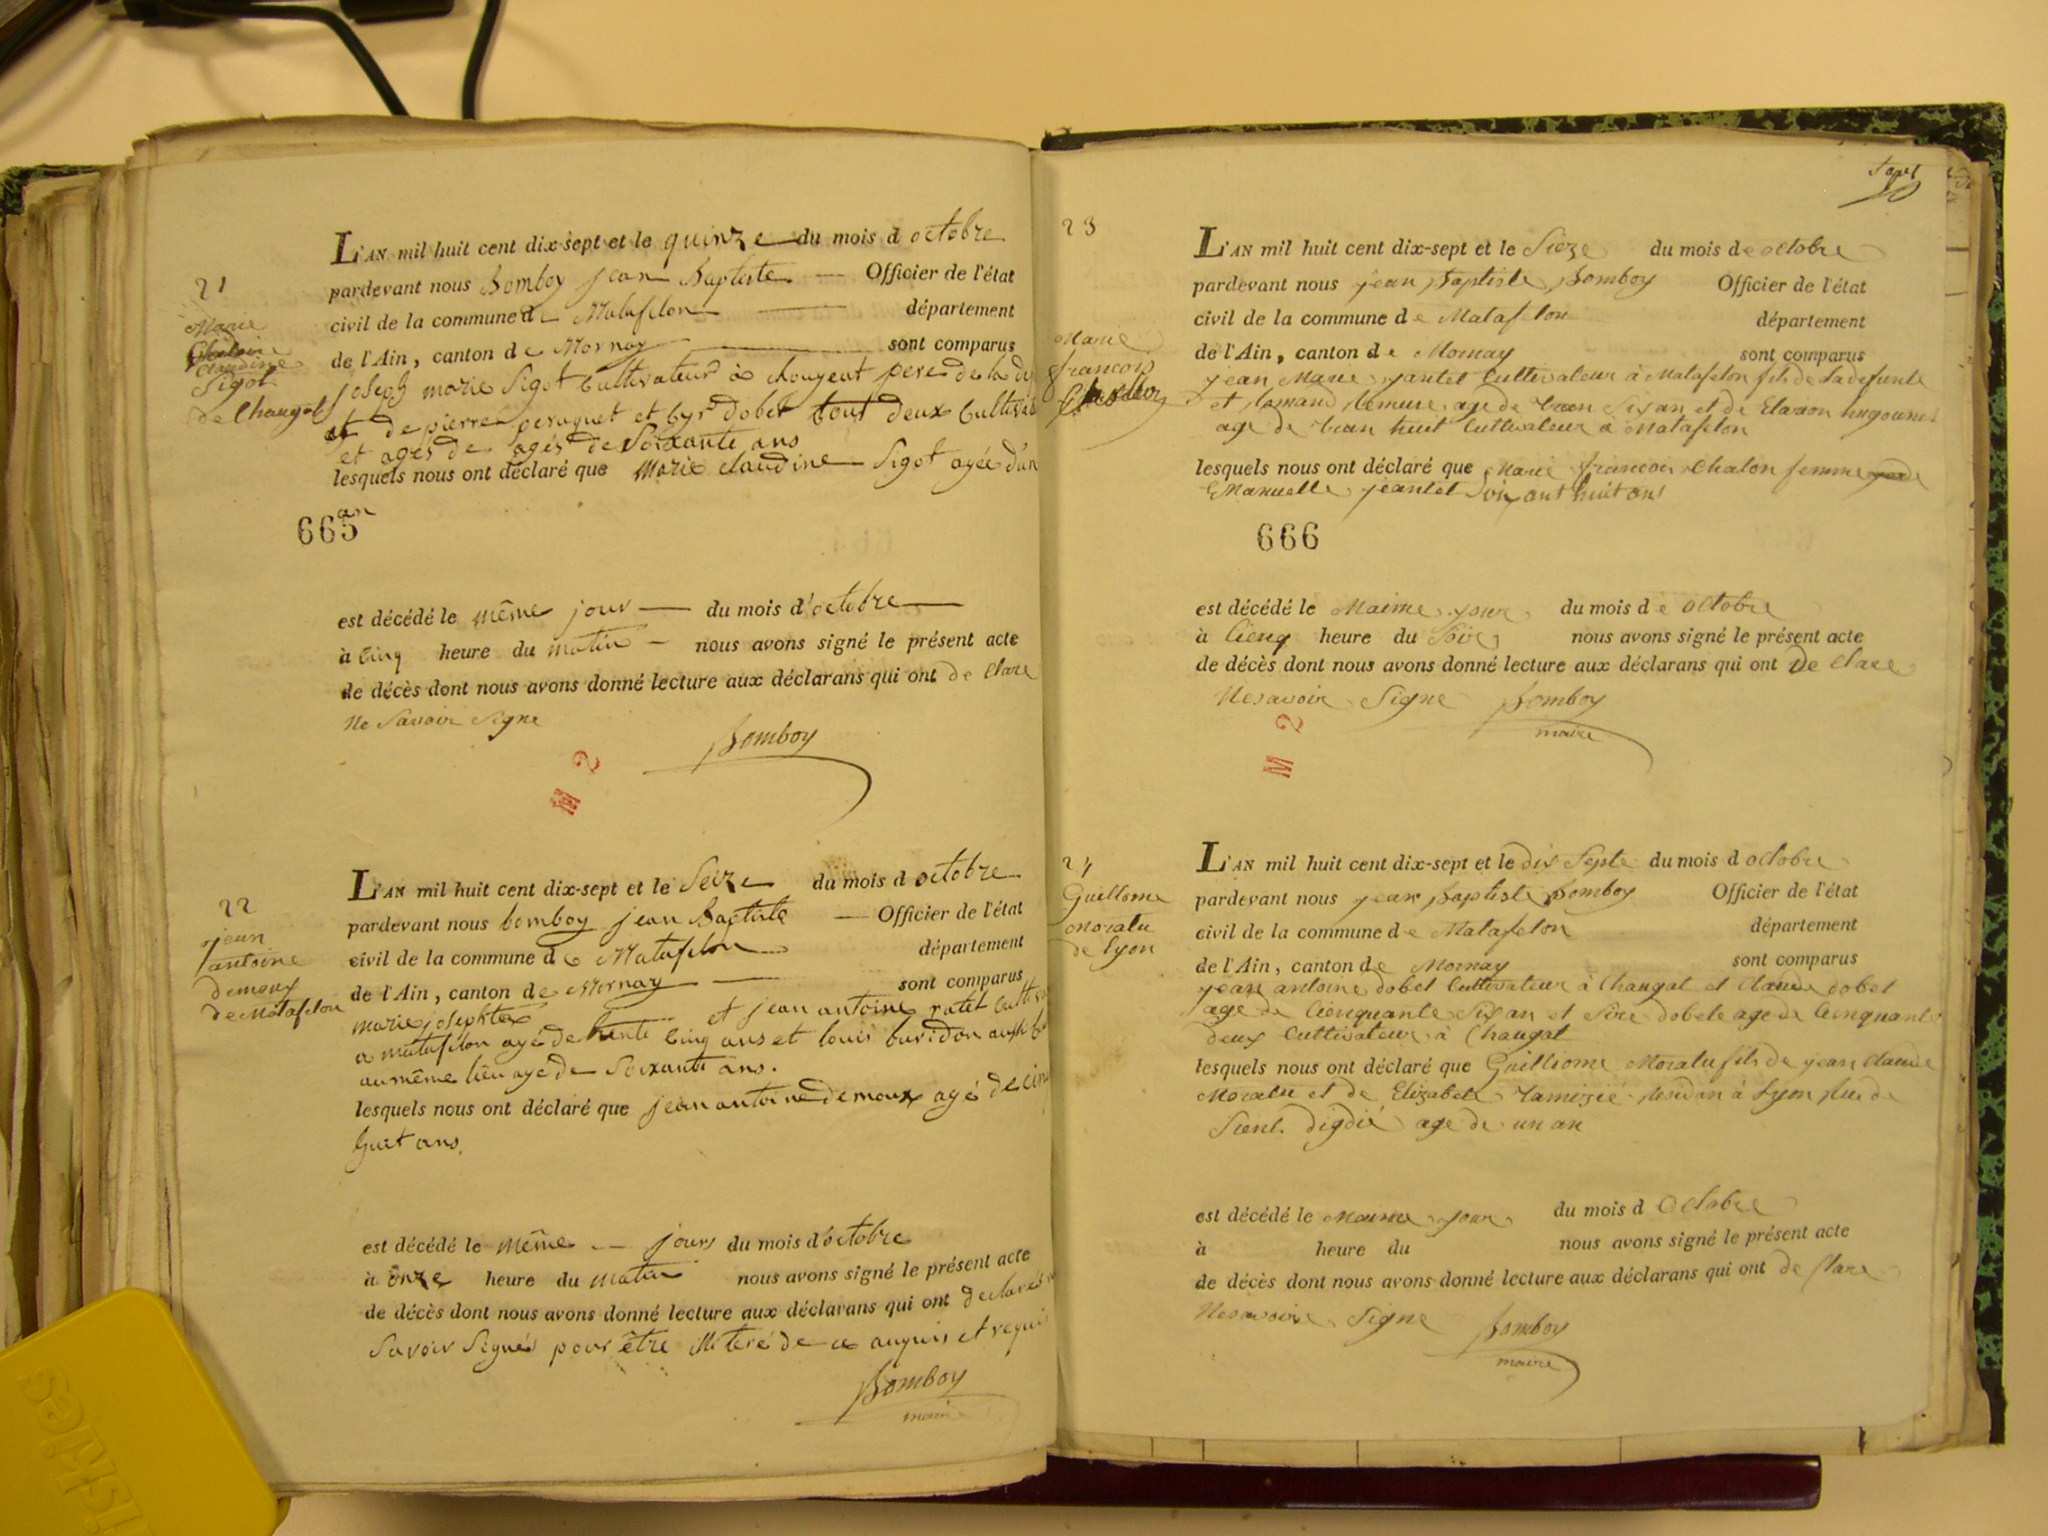 21
Marie
Claudine
Sigot
de Chaugat
L'AN mil huit cent dix-sept et le quinze du mois d octobre
pardevant nous Bomboy jean Baptiste Officier de l'état
civil de la commune de Matafelon département
de l'Ain, canton de Mornay sont comparus
joseph marie Sigot Cultivateur à pere de la
et de pierre peruquet et dobet tout deux Cultiva
et agés de agés de Soixante ans
lesquels nous ont déclaré que Marie claudine Sigot agée d'un
an
665
est décédé le même jour du mois d'octobre
à Cinq heure du matin nous avons signé le présent acte
de décès dont nous avons donné lecture aux déclarans qui ont de Clare
Ne Savoir Signe
Bomboy
M 2
22
jean
antoine
demoux
de Matafelon
L'AN mil huit cent dix-sept et le Seize du mois d octobre
pardevant nous bomboy jean Baptiste Officier de l'état
civil de la commune de Matafelon département
de l'Ain, canton de Mornay sont comparus
marie joseph et jean antoine ratet Cultiv
a matafelon agé de trente Cinq ans et louis buridon
au même lieu age de Soixante ans.
lesquels nous ont déclaré que jean antoine demoux agé de cin
huit ans.
est décédé le même jours du mois d'octobre
à onze heure du matin nous avons signé le présent acte
de décès dont nous avons donné lecture aux déclarans qui ont declarés
Savoir Signés pour être de ce anquis et requis
Bomboy
maire
23
Marie
francois
Chalon
L'AN mil huit cent dix-sept et le Sieze du mois de octobre
pardevant nous jean Baptiste Bomboy Officier de l'état
civil de la commune de Matafelon département
de l'Ain, canton de Mornay sont comparus
jean Marie jantet Cultivateur à Matafelon fils de la defunte
et age de Sis an et de
age de huit Cultivateur a Matafelon
lesquels nous ont déclaré que Marie francois Chalon femme
Emanuelle jeantet Soixant huit ans
666
est décédé le Maime jour du mois de octobre
à Cienq heure du Soir nous avons signé le présent acte
de décès dont nous avons donné lecture aux déclarans qui ont De Clare
Nesavoir Signe Bomboy
maire
M 2
24
Guillome
Moralu
de Lyon
L'AN mil huit cent dix-sept et le dis Septe du mois d octobre
pardevant nous jean Baptiste Bomboy Officier de l'état
civil de la commune de Matafelon département
de l'Ain, canton de Mornay sont comparus
jean antoine dobet Cultivateur à Chaugat et Claude dobet
age de Cienquante Sis an et dobet age de Cienquante
deux Cultivateur à Chaugat
lesquels nous ont déclaré que Guilliome Moralu fils de jean Claude
Moralu et de Elizabete à Lyon Rue de
age de un an
est décédé le Maime jour du mois d Octobre
à heure du nous avons signé le présent acte
de décès dont nous avons donné lecture aux déclarans qui ont de Clare
Nesavoire Signe Bomboy
maire